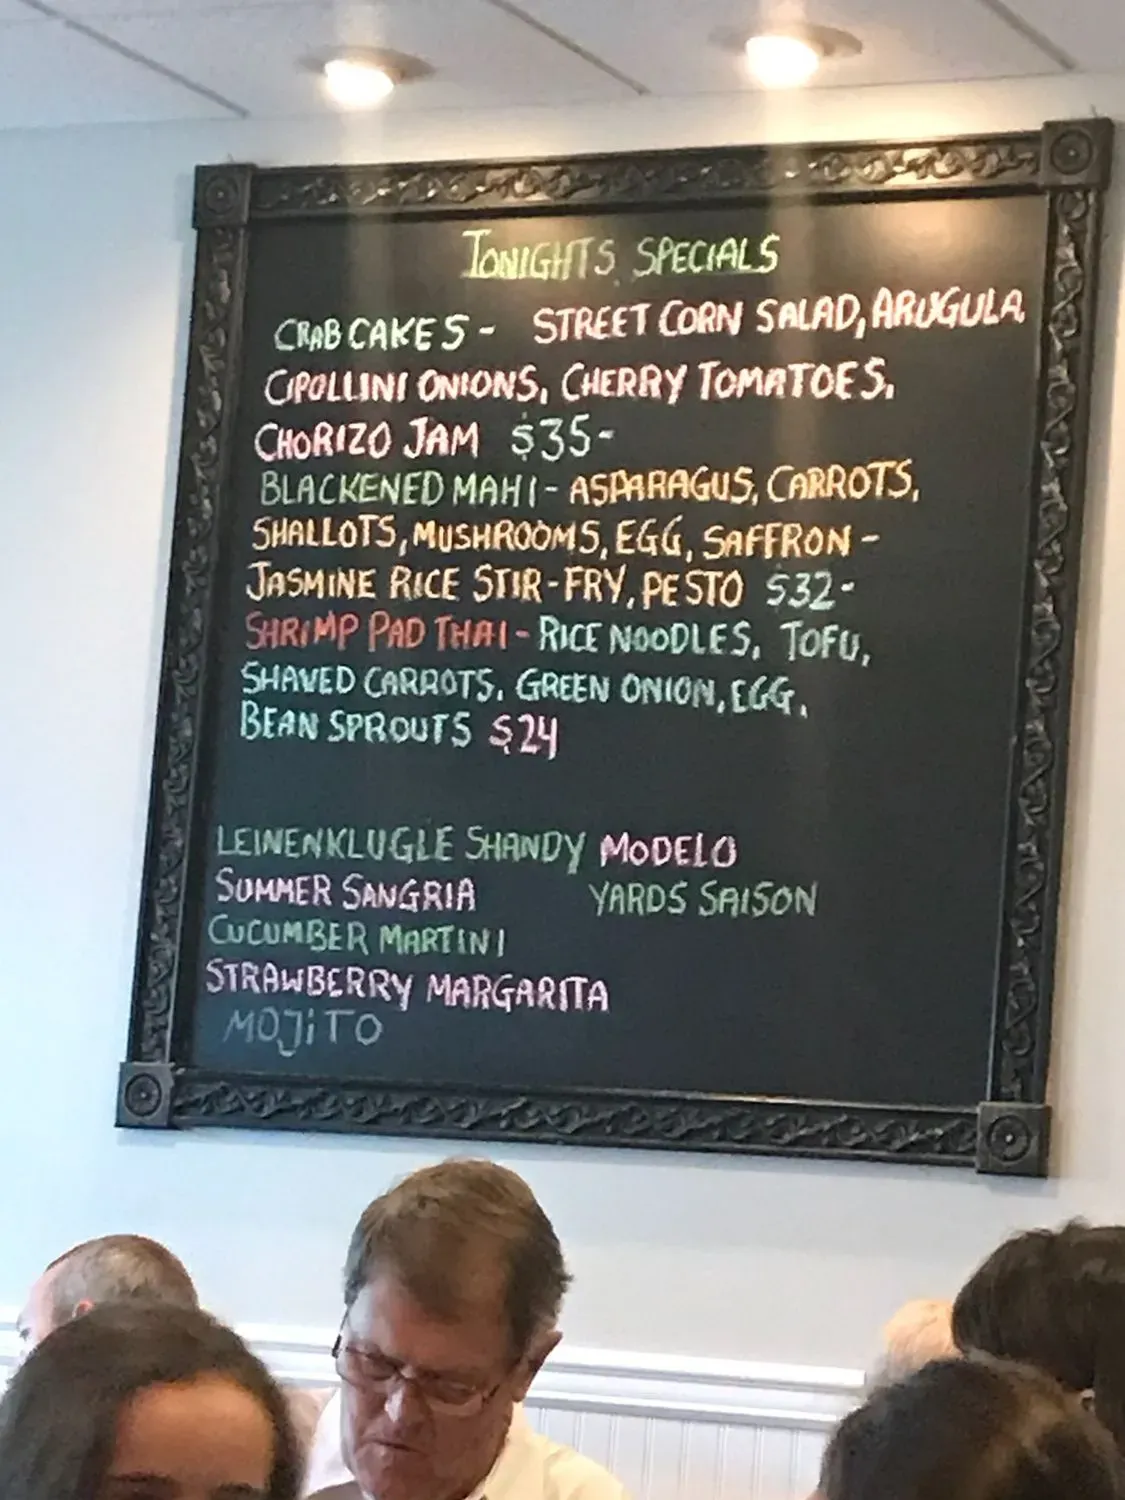 TONIGHTS SPECIALS
CRAB CAKES - STREET CORN SALAD, ARUGULA,
CIPOLLINI ONIONS, CHERRY TOMATOES,
CHORIZO JAM $35-
BLACKENED MAHI - ASPARAGUS, CARROTS,
SHALLOTS, MUSHROOMS, EGG, SAFFRON -
JASMINE RICE STIR-FRY, PESTO $32-
SHRIMP PAD THAI - RICE NOODLES, TOFU,
SHAVED CARROTS, GREEN ONION, EGG,
BEAN SPROUTS $24
LEINENKLUGLE SHANDY MODELO
SUMMER SANGRIA YARDS SAISON
CUCUMBER MARTINI
STRAWBERRY MARGARITA
MOJITO